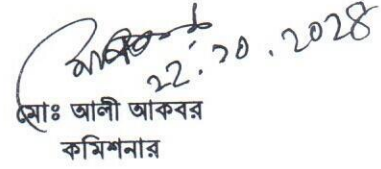 ২২.১০.২০২৪
মোঃ আলী আকবর
কমিশনার